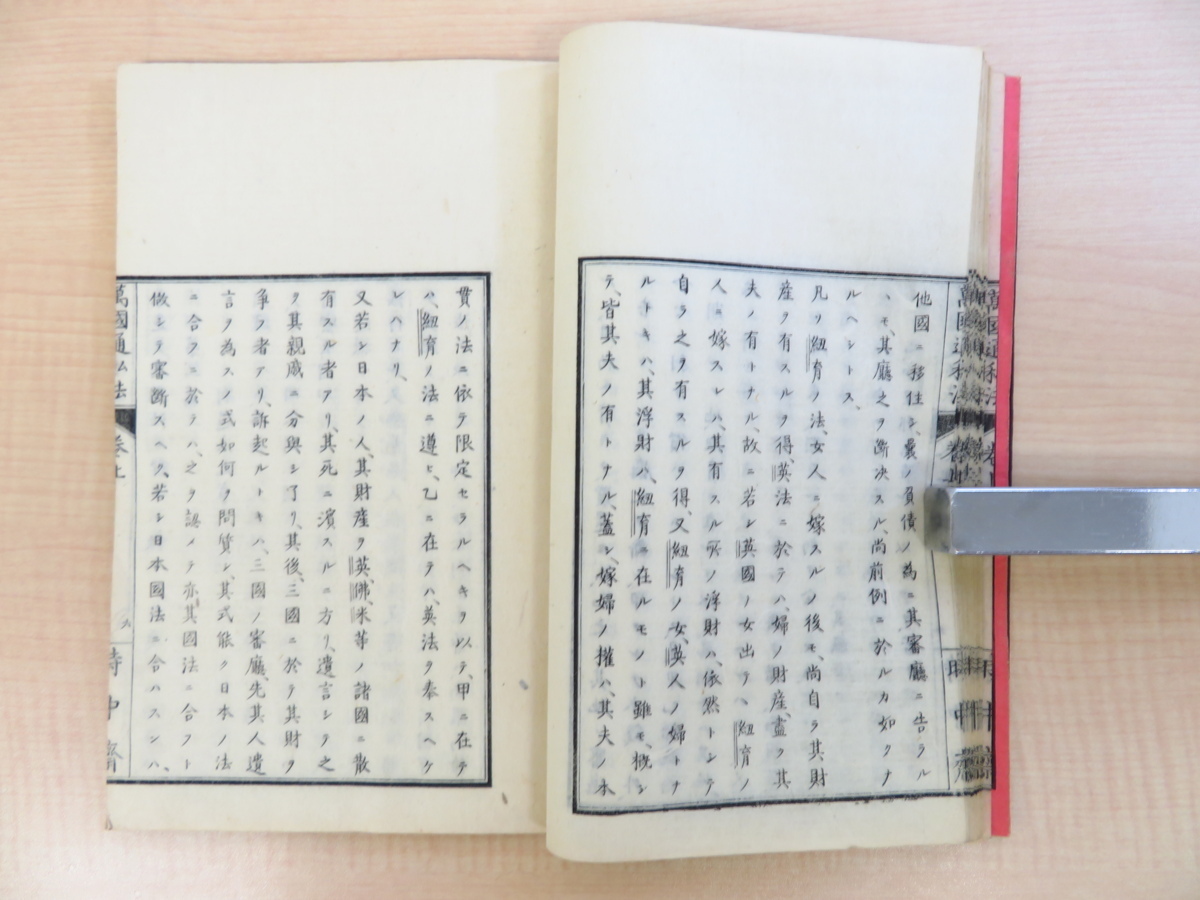 他國ニ移住シ、曩ノ負債ノ為ニ其審廳ニ告ラル
、モ、其廳之ヲ斷决スル、尚前例ニ於ルカ如クナ
ルヘシトス、
凡ソ紐育ノ法、女人ニ嫁スルノ後モ、尚自ラ其財
産ヲ有スルヲ得、英法ニ於テハ、婦ノ財産、盡ク其
夫ノ有トナル、故ニ若シ英國ノ女出テヽ紐育ノ
人ニ嫁スレハ、其有スル所ノ浮財ハ、依然トシテ
自ラ之ヲ有スルヲ得、又紐育ノ女、英人ノ婦トナ
ルトキハ、其浮財ハ、紐育ニ在ルモノト雖モ、概シ
テ、皆其夫ノ有トナル、蓋シ、嫁婦ノ權ハ、其夫ノ本
貫ノ法ニ依テ限定セラルヘキヲ以テ、甲ニ在テ
ハ、紐育ノ法ニ遵ヒ、乙ニ在テハ、英法ヲ奉スヘケ
レハナリ、
又若シ日本ノ人、其財産ヲ英、佛、米等ノ諸國ニ散
有スル者アリ、其死ニ濱スルニ方リ、遺言シテ之
ヲ其親戚ニ分與シ了リ、其後、三國ニ於テ其財ヲ
争フ者アリ、訴起ルトキハ、三國ノ審廳、先其人遺
言ヲ為スノ式如何ヲ問質シ、其式能ク日本ノ法
ニ合フニ於テハ、之ヲ認メテ亦其國法ニ合フト
做シテ審斷スヘク、若シ日本國法ニ合ハスンハ、
萬國通私法
卷上
時中齋